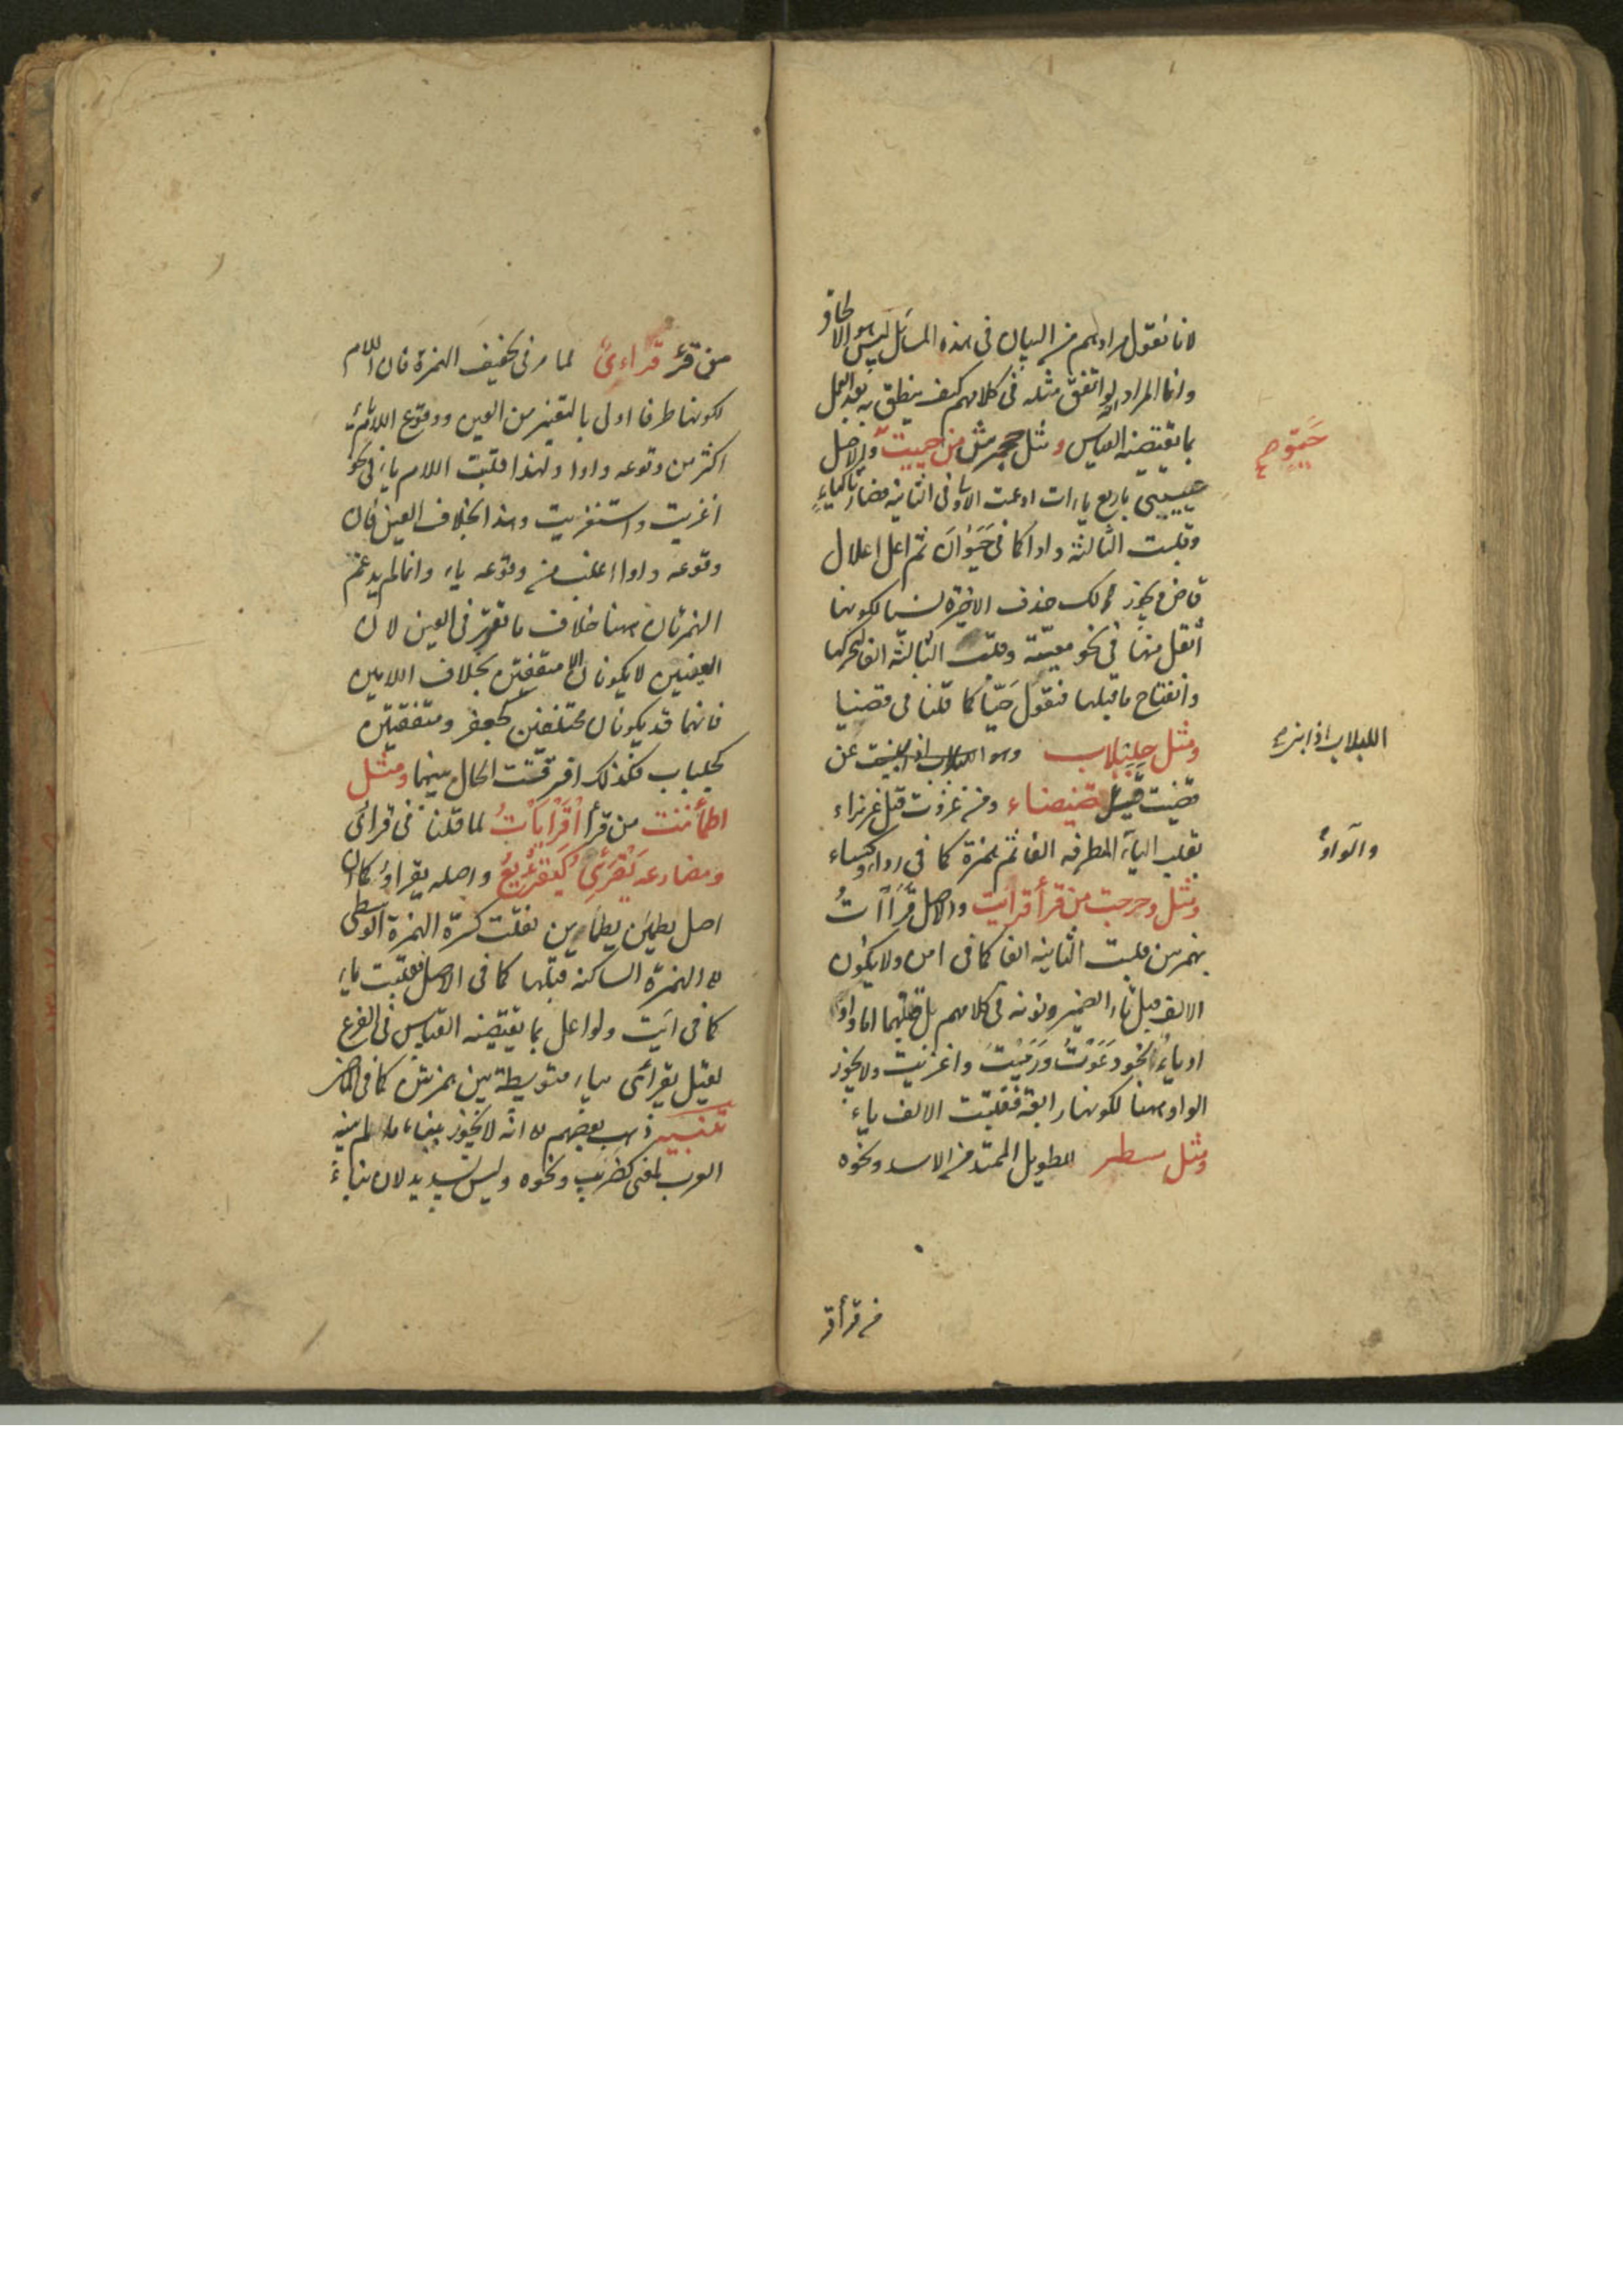 لانا نقول مرادهم من البيان فى هذه المسائل ليس هو الالحاق
وانما المراد انه لو اتفق مثله فى كلامهم كيف ينطق به بعد العمل
بما يقتضيه القياس ومثل جحمرش من حييت والاصل
حَيَّوٍ صح
حييييى باربع ياءات ادغمت الاولى فى الثانية فصارتا كياء
وقلبت الثالثة واوا كما فى حَيَوَان ثم اعل اعلال
قاض ويجوز لك حذف الاخيرة نسيا لكونها
أثقل منها فى نحو معيّة وقلبت الثالثة الفا لتحركها
وانفتاح ما قبلها فتقول حَيّا كما قلنا فى قضيا
ومثل حلبلاب وهو اللبلاب اذا بنيت من
اللبلاب اذا بنيت
قضيت قيل قضيضاء ومن غزوت قيل غزيزاء
بقلب الياء المتطرفه الفا ثم همزة كما فى رداء وكساء
والواو
ومثل دحرجت من قرأ قرأيت والاصل قَرَأَأْتُ
بهمزتين قلبت الثانيه الفا كما فى امن ولا يكون
الالف قبل تاء الضمير ونونه فى كلامهم بل قبلهما اما واو
او ياء نحو دَعَوْتُ وَرَمَيْتَ واغزيت ولا يجوز
الواو ههنا لكونها رابعة فقلبت الالف ياء
ومثل سبطر للطويل الممتد من الاسد ونحوه
من قرأ قر
من قرأ قراءى لما مر فى تخفيف الهمزة فان اللام
لكونها طرفا اولى بالتغيير من العين ووقوع اللام ياء
اكثر من وقوعه واوا ولهذا قلبت اللام ياء فى نحو
اغزيت واستغزيت وهذا بخلاف العين فان
وقوعه واوا اغلب من وقوعه ياء وانما لم يدغم
الهمزتان ههنا خلاف ما تقرر فى العين لان
العينين لا يكونان الا متفقين بخلاف اللامين
فانهما قد يكونان مختلفين كجعفر ومتفقين
كجلباب فكذلك افترقت الحال بينهما ومثل
اطمأننت من قرأ اقْرَأْيَأْتُ لما قلنا فى قرائى
ومضارعه يَقْرَئِىُ كيقرعيع واصله يقرأأئ كما ان
اصل يطمئن يطمأنن نقلت كسرة الهمزة الوسطى
الى الهمزة الساكنه قبلها كما فى الاصل فقلبت ياء
كما فى ايت ولو اعل بما يقتضيه القياس فى الفرع
لقيل يقرأئى بياء متوسطة بين همزتين كما فى الماضى
تنبيه ذهب بعضهم الى انه لا يجوز بناء ما لم يبنه
العرب لمعنى كضربب ونحوه وليس بسديد لان بناء